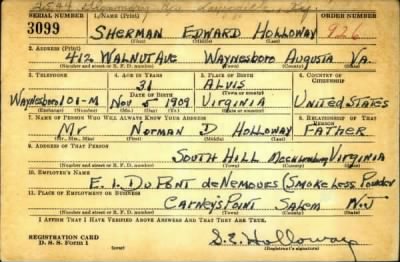 2544
SERIAL NUMBER 1. NAME (Print) ORDER NUMBER
3099 SHERMAN EDWARD HOLLOWAY 926
(First) (Middle) (Last)
2. ADDRESS (Print)
412 WALNUT AVE WAYNESBORO AUGUSTA VA.
(Number and street or R. F. D. number) (Town) (County) (State)
3. TELEPHONE 4. AGE IN YEARS 5. PLACE OF BIRTH 6. COUNTRY OF CITIZENSHIP
31 ALVIS
DATE OF BIRTH
Waynesboro 101-M Nov 5 1909 Virginia United States
(Exchange) (Number) (Mo.) (Day) (Yr.) (State or country)
7. NAME OF PERSON WHO WILL ALWAYS KNOW YOUR ADDRESS 8. RELATIONSHIP OF THAT PERSON
Mr Norman D Holloway FATHER
(Mr., Mrs., Miss) (First) (Middle) (Last)
9. ADDRESS OF THAT PERSON
SOUTH HILL Mecklenburg VIRGINIA
(Number and street or R. F. D. number) (Town) (County) (State)
10. EMPLOYER'S NAME
E. I. DU PONT de NEMOURS (SMOKELESS Powder
11. PLACE OF EMPLOYMENT OR BUSINESS
CARNEYS POINT SALEM N.J
(Number and street or R. F. D. number) (Town) (County) (State)
I AFFIRM THAT I HAVE VERIFIED ABOVE ANSWERS AND THAT THEY ARE TRUE.
REGISTRATION CARD
D. S. S. Form 1 (over) S. E. Holloway
(Registrant's signature)